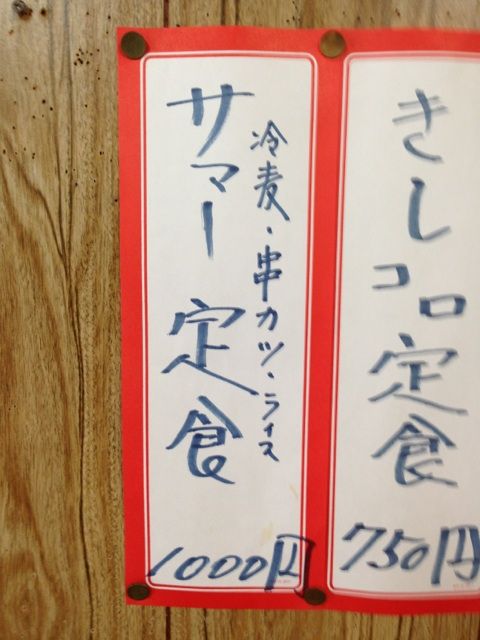 きしコロ定食
750円
冷麦・串カツ・ライス
サマー定食
1000円